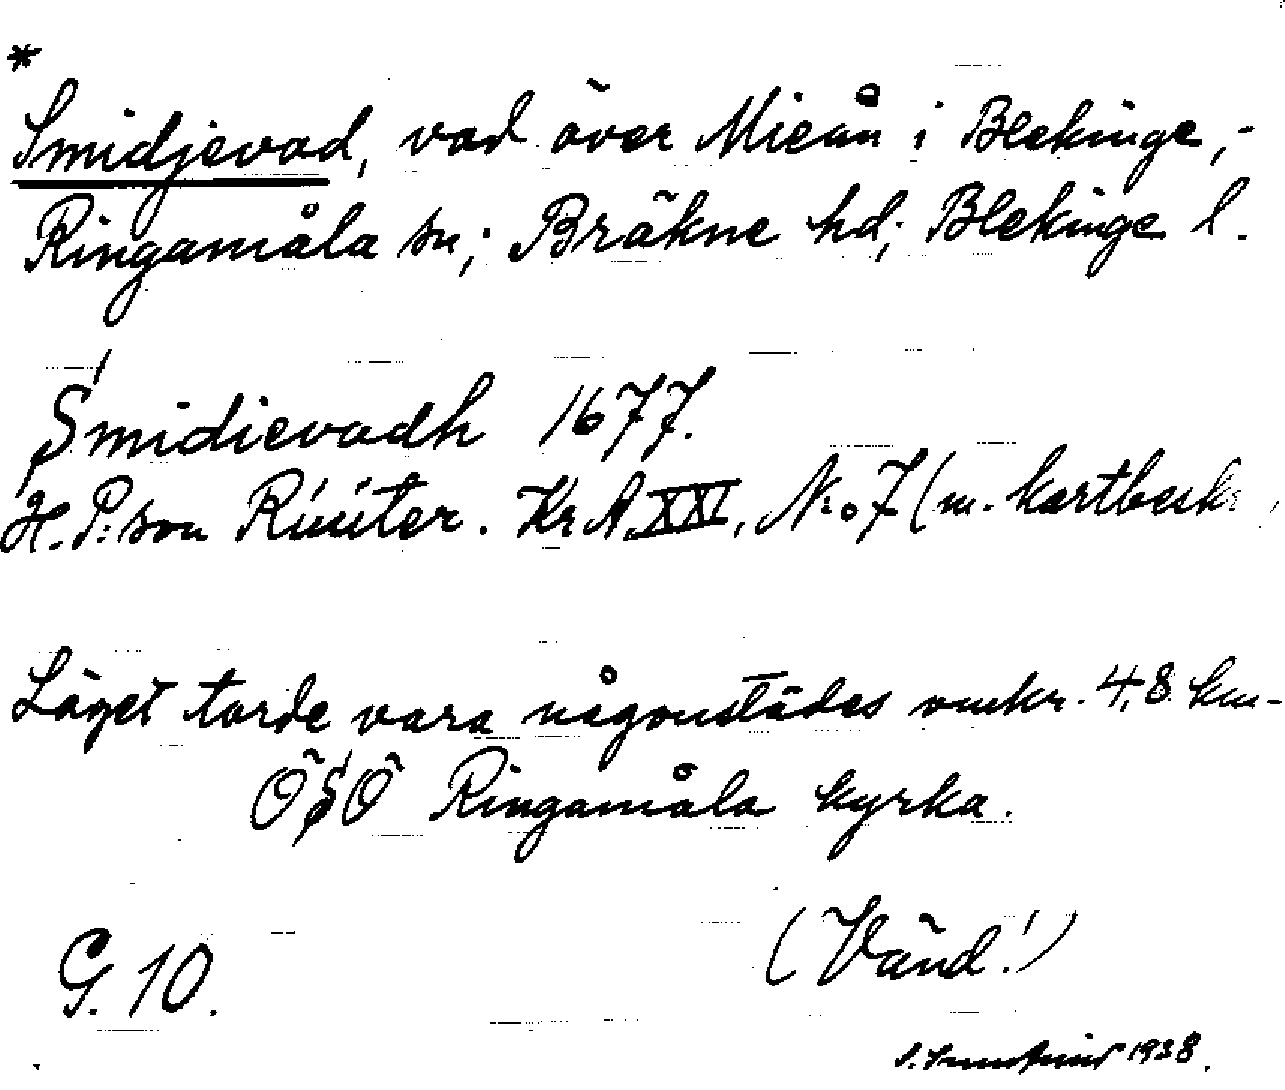 *
Smidjevad, vad över Mieån i Blekinge,-
Ringamåla sn; Bräkne hd; Blekinge l.
Smidievadh 1677.
H. P:son Rúúter. Kr.A. XXI, No 7 (m. kartbeskr.
Läget torde vara någonstädes omkr. 4,8 km-
ÖSÖ Ringamåla kyrka.
(Vänd!)
G. 10.
1938.